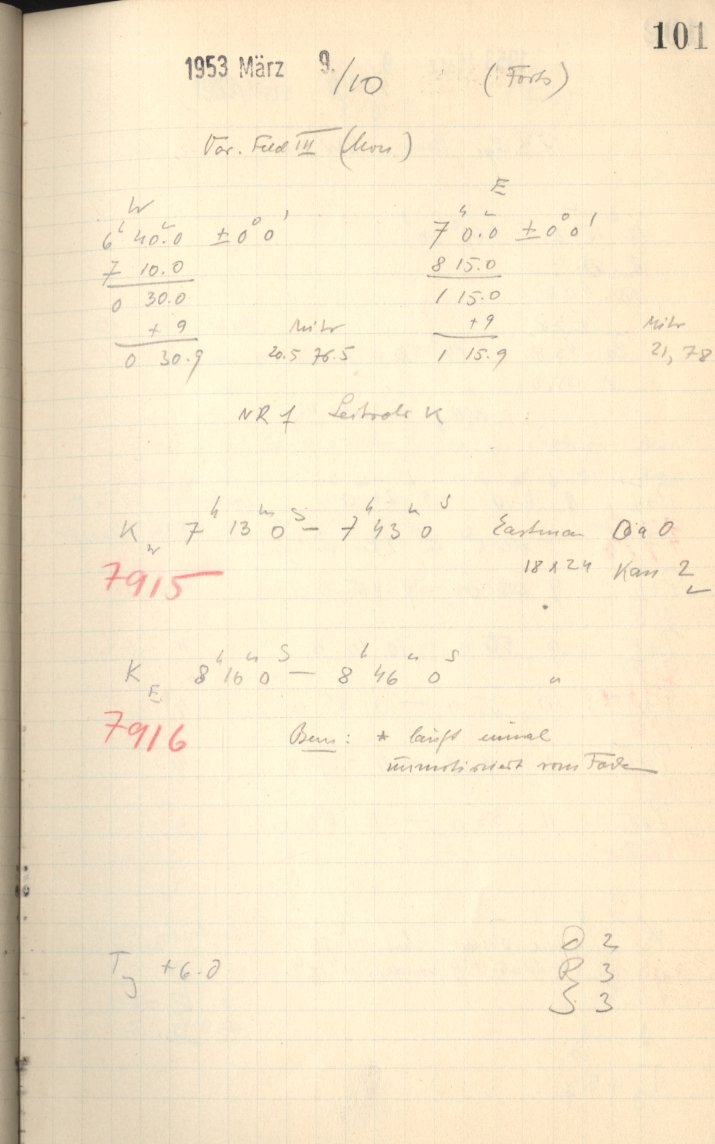 101
1953 März 9./10 (Forts)
Var. Feld III (Mon)
W
6h 40.0 ± 0° 0'
7 10.0
0 30.0
+ 9
0 30.9
Mikr
20.5 76.5
E
7h 0.0 ± 0° 0'
8 15.0
1 15.0
+ 9
1 15.9
Mikr
21, 78
NR f Leitrohr K
K W 7h 13m 0s – 7h 43m 0s Eastman 0a0
18x24 Kass 2
7915
K E 8h 16m 0s – 8h 46m 0s "
7916
Bem: * läuft einmal
unmotiviert vom Faden
T +6.0
D 2
R 3
S 3